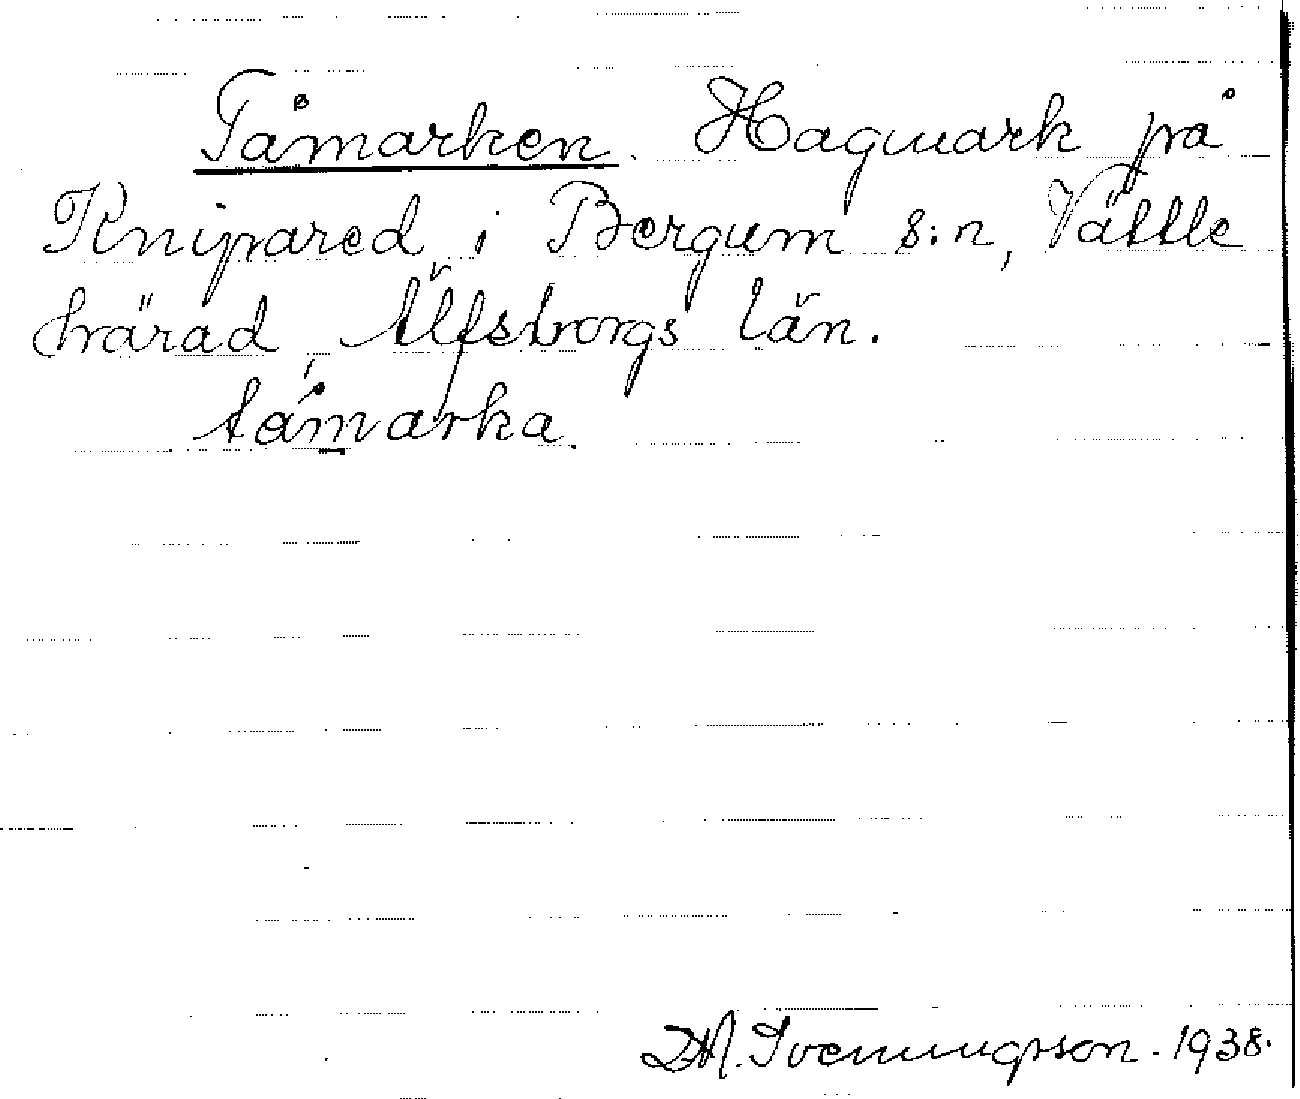 Tåmarken. Hagmark på
Knipared i Bergum s:n, Vättle
härad, Älfsborgs län.
tåmarka.
D.M. Svenningsson. 1938.